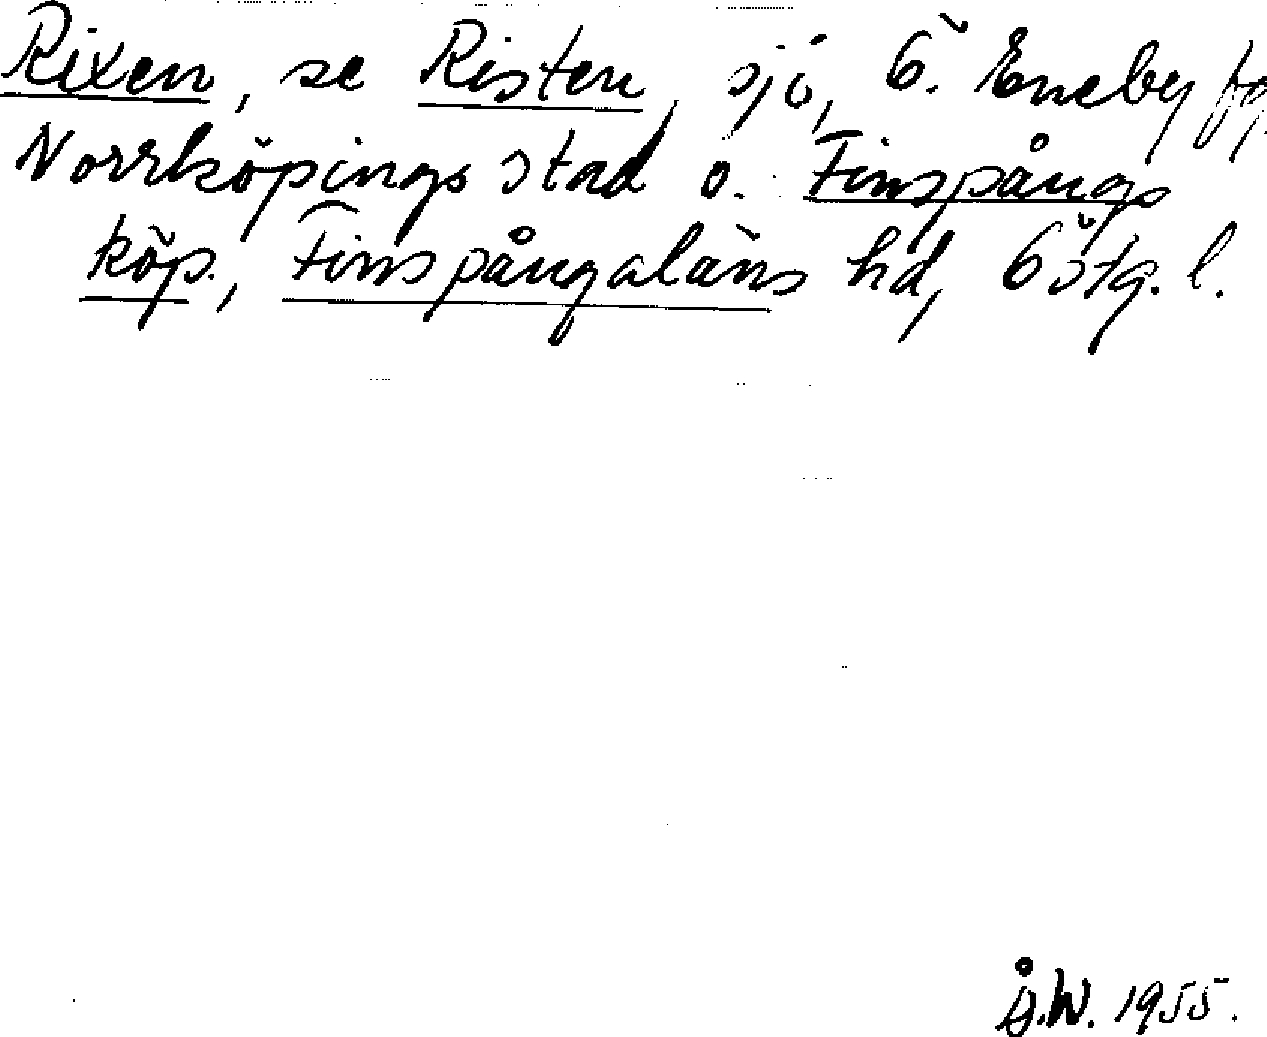 Rixen, se Risten, sjö, Ö. Eneby fg,
Norrköpings stad o. Finspångs
köp., Finspångaläns hd, Östg. l.
Å.W. 1955.